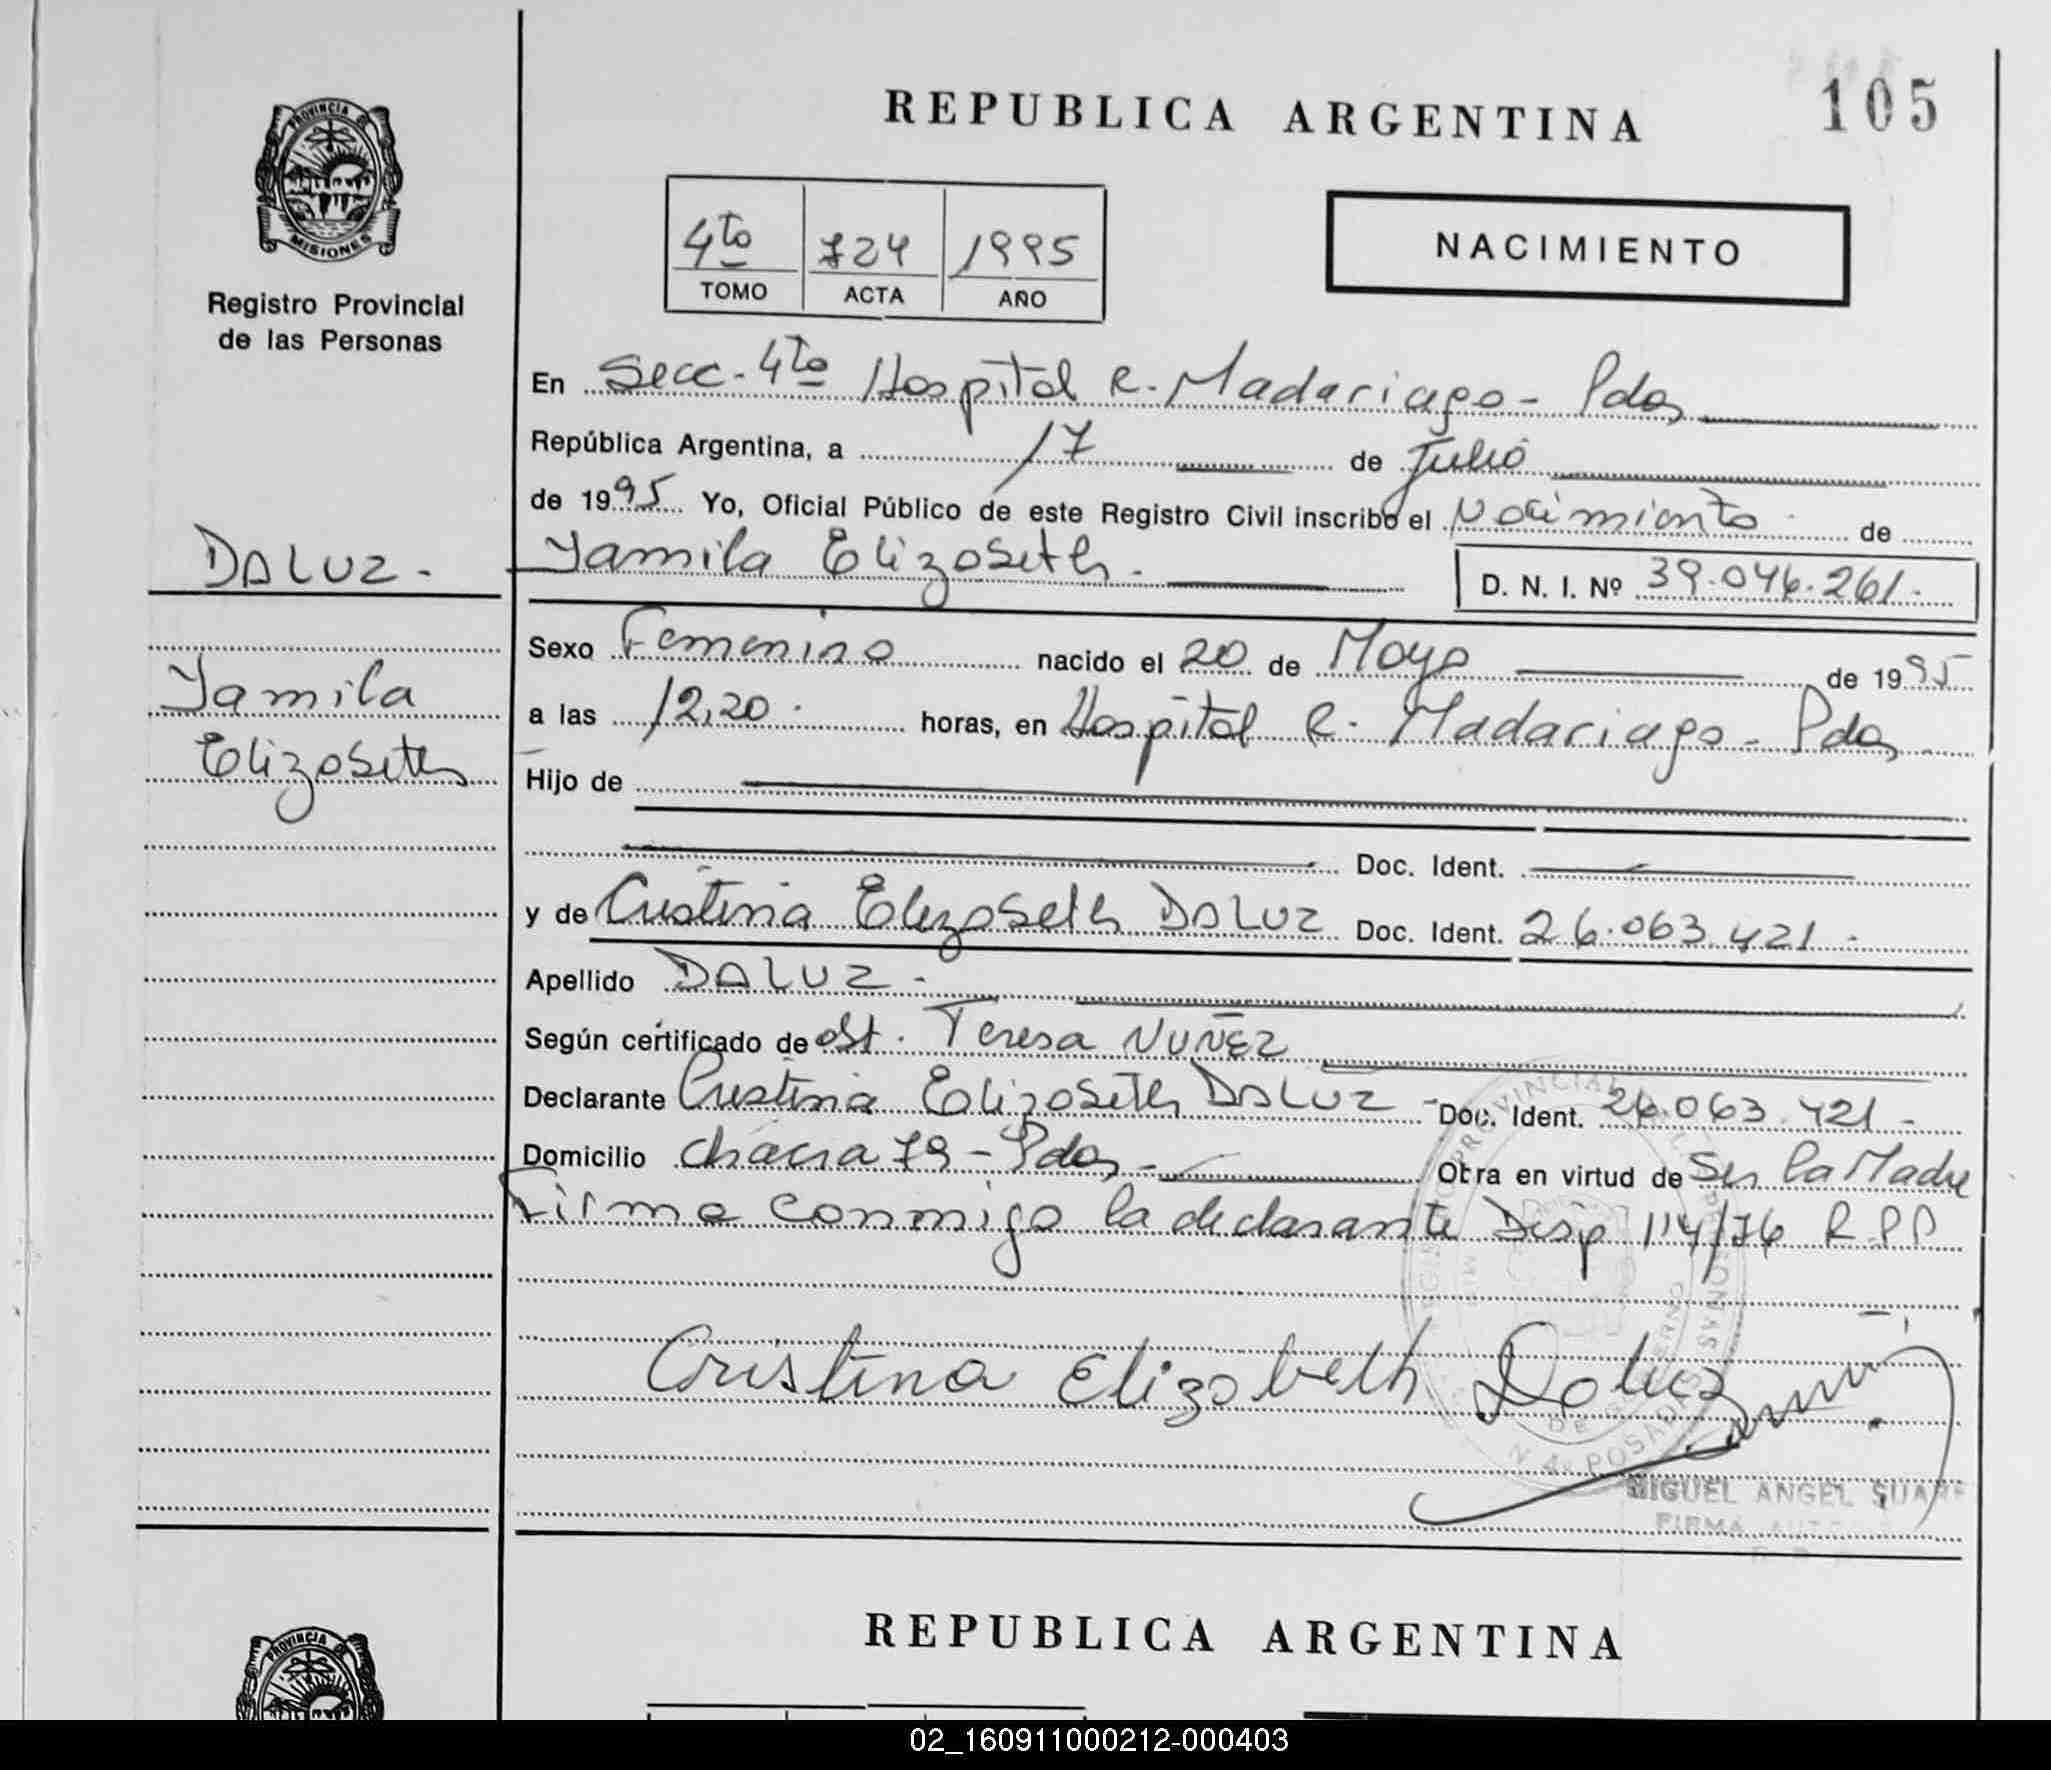 REPUBLICA ARGENTINA
105
PROVINCIA DE
MISIONES
Registro Provincial
de las Personas
4to 724 1995
TOMO ACTA AÑO
NACIMIENTO
En Secc. 4to Hospital R. Madariaga - Pdas
República Argentina, a 17 de Julio
de 1995 Yo, Oficial Público de este Registro Civil inscribo el Nacimiento de
DA LUZ.
Yamila Elizabeth.
D. N. I. Nº 39.046.261.
Yamila
Elizabeth
Sexo Femenino nacido el 20 de Mayo de 1995
a las 12,20. horas, en Hospital R. Madariaga - Pdas
Hijo de
Doc. Ident.
y de Cristina Elizabeth DA LUZ Doc. Ident. 26.063.421.
Apellido DA LUZ.
Según certificado de Obst. Teresa NUÑEZ
Declarante Cristina Elizabeth DA LUZ - Doc. Ident. 26.063.421.
Domicilio chacra 79 - Pdas - Obra en virtud de Ser la Madre
Firma conmigo la declarante Disp 114/76 R.P.P
Cristina Elizabeth Da luz
REGISTRO PROVINCIAL DE LAS PERSONAS
POSADAS
MIGUEL ANGEL SUAREZ
FIRMA
REPUBLICA ARGENTINA
PROVINCIA DE
02_160911000212-000403